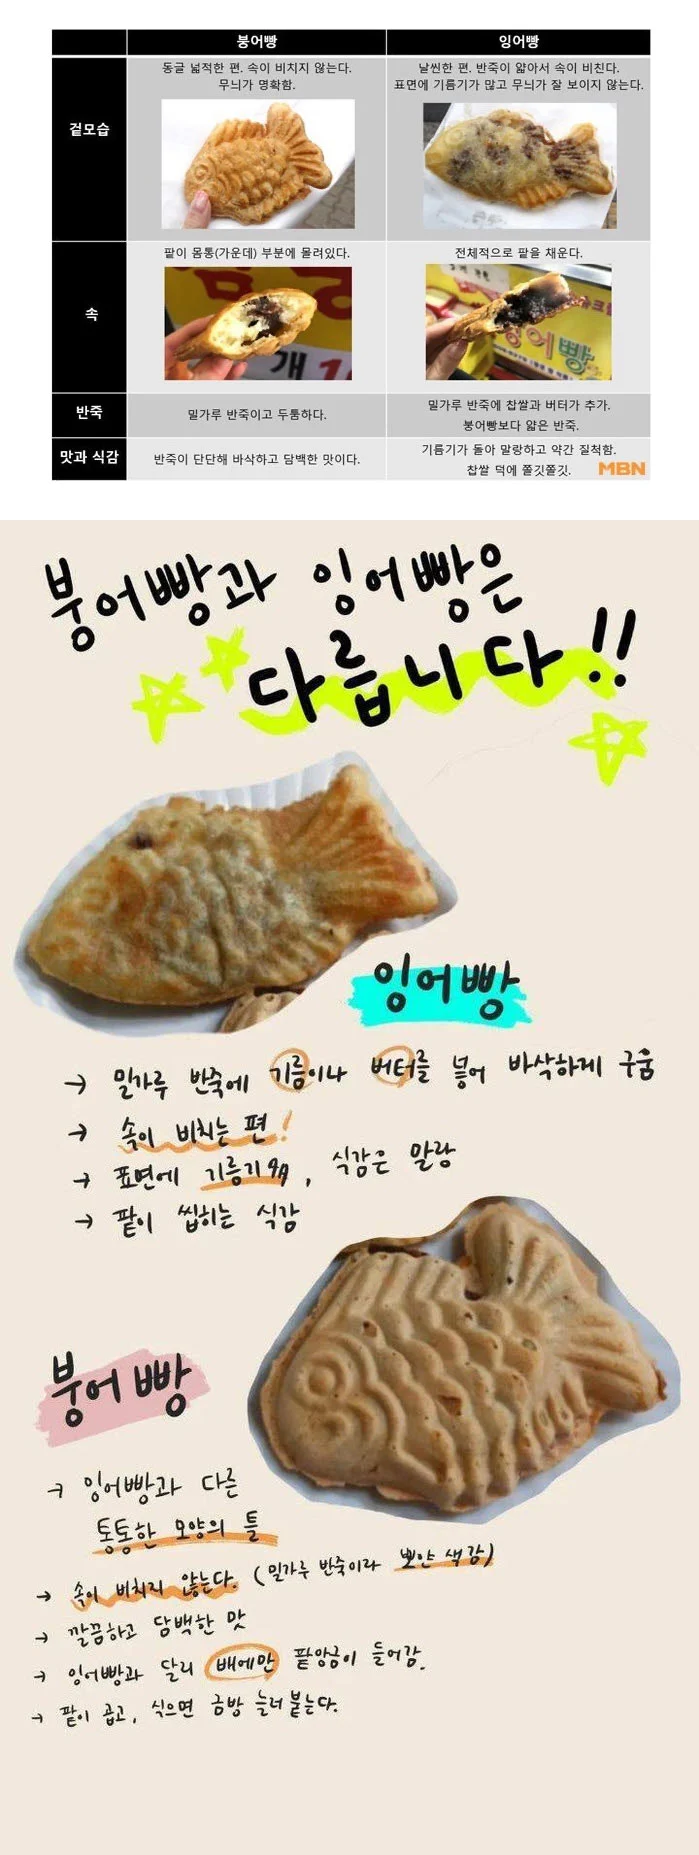 붕어빵
잉어빵
겉모습
동글 넓적한 편. 속이 비치지 않는다.
무늬가 명확함.
날씬한 편. 반죽이 얇아서 속이 비친다.
표면에 기름기가 많고 무늬가 잘 보이지 않는다.
속
팥이 몸통(가운데) 부분에 몰려있다.
전체적으로 팥을 채운다.
개 1
잉어빵
반죽
밀가루 반죽이고 두툼하다.
밀가루 반죽에 찹쌀과 버터가 추가.
붕어빵보다 얇은 반죽.
맛과 식감
반죽이 단단해 바삭하고 담백한 맛이다.
기름기가 돌아 말랑하고 약간 질척함.
찹쌀 덕에 쫄깃쫄깃.
MBN
붕어빵과 잉어빵은
다릅니다!!
잉어빵
→ 밀가루 반죽에 기름이나 버터를 넣어 바삭하게 구움
→ 속이 비치는 편!
→ 표면에 기름기有, 식감은 말랑
→ 팥이 씹히는 식감
붕어빵
→ 잉어빵과 다른
통통한 모양의 틀
→ 속이 비치지 않는다. (밀가루 반죽이라 뽀얀 색감)
→ 깔끔하고 담백한 맛
→ 잉어빵과 달리 배에만 팥앙금이 들어감.
→ 팥이 곱고, 식으면 금방 눌러붙는다.